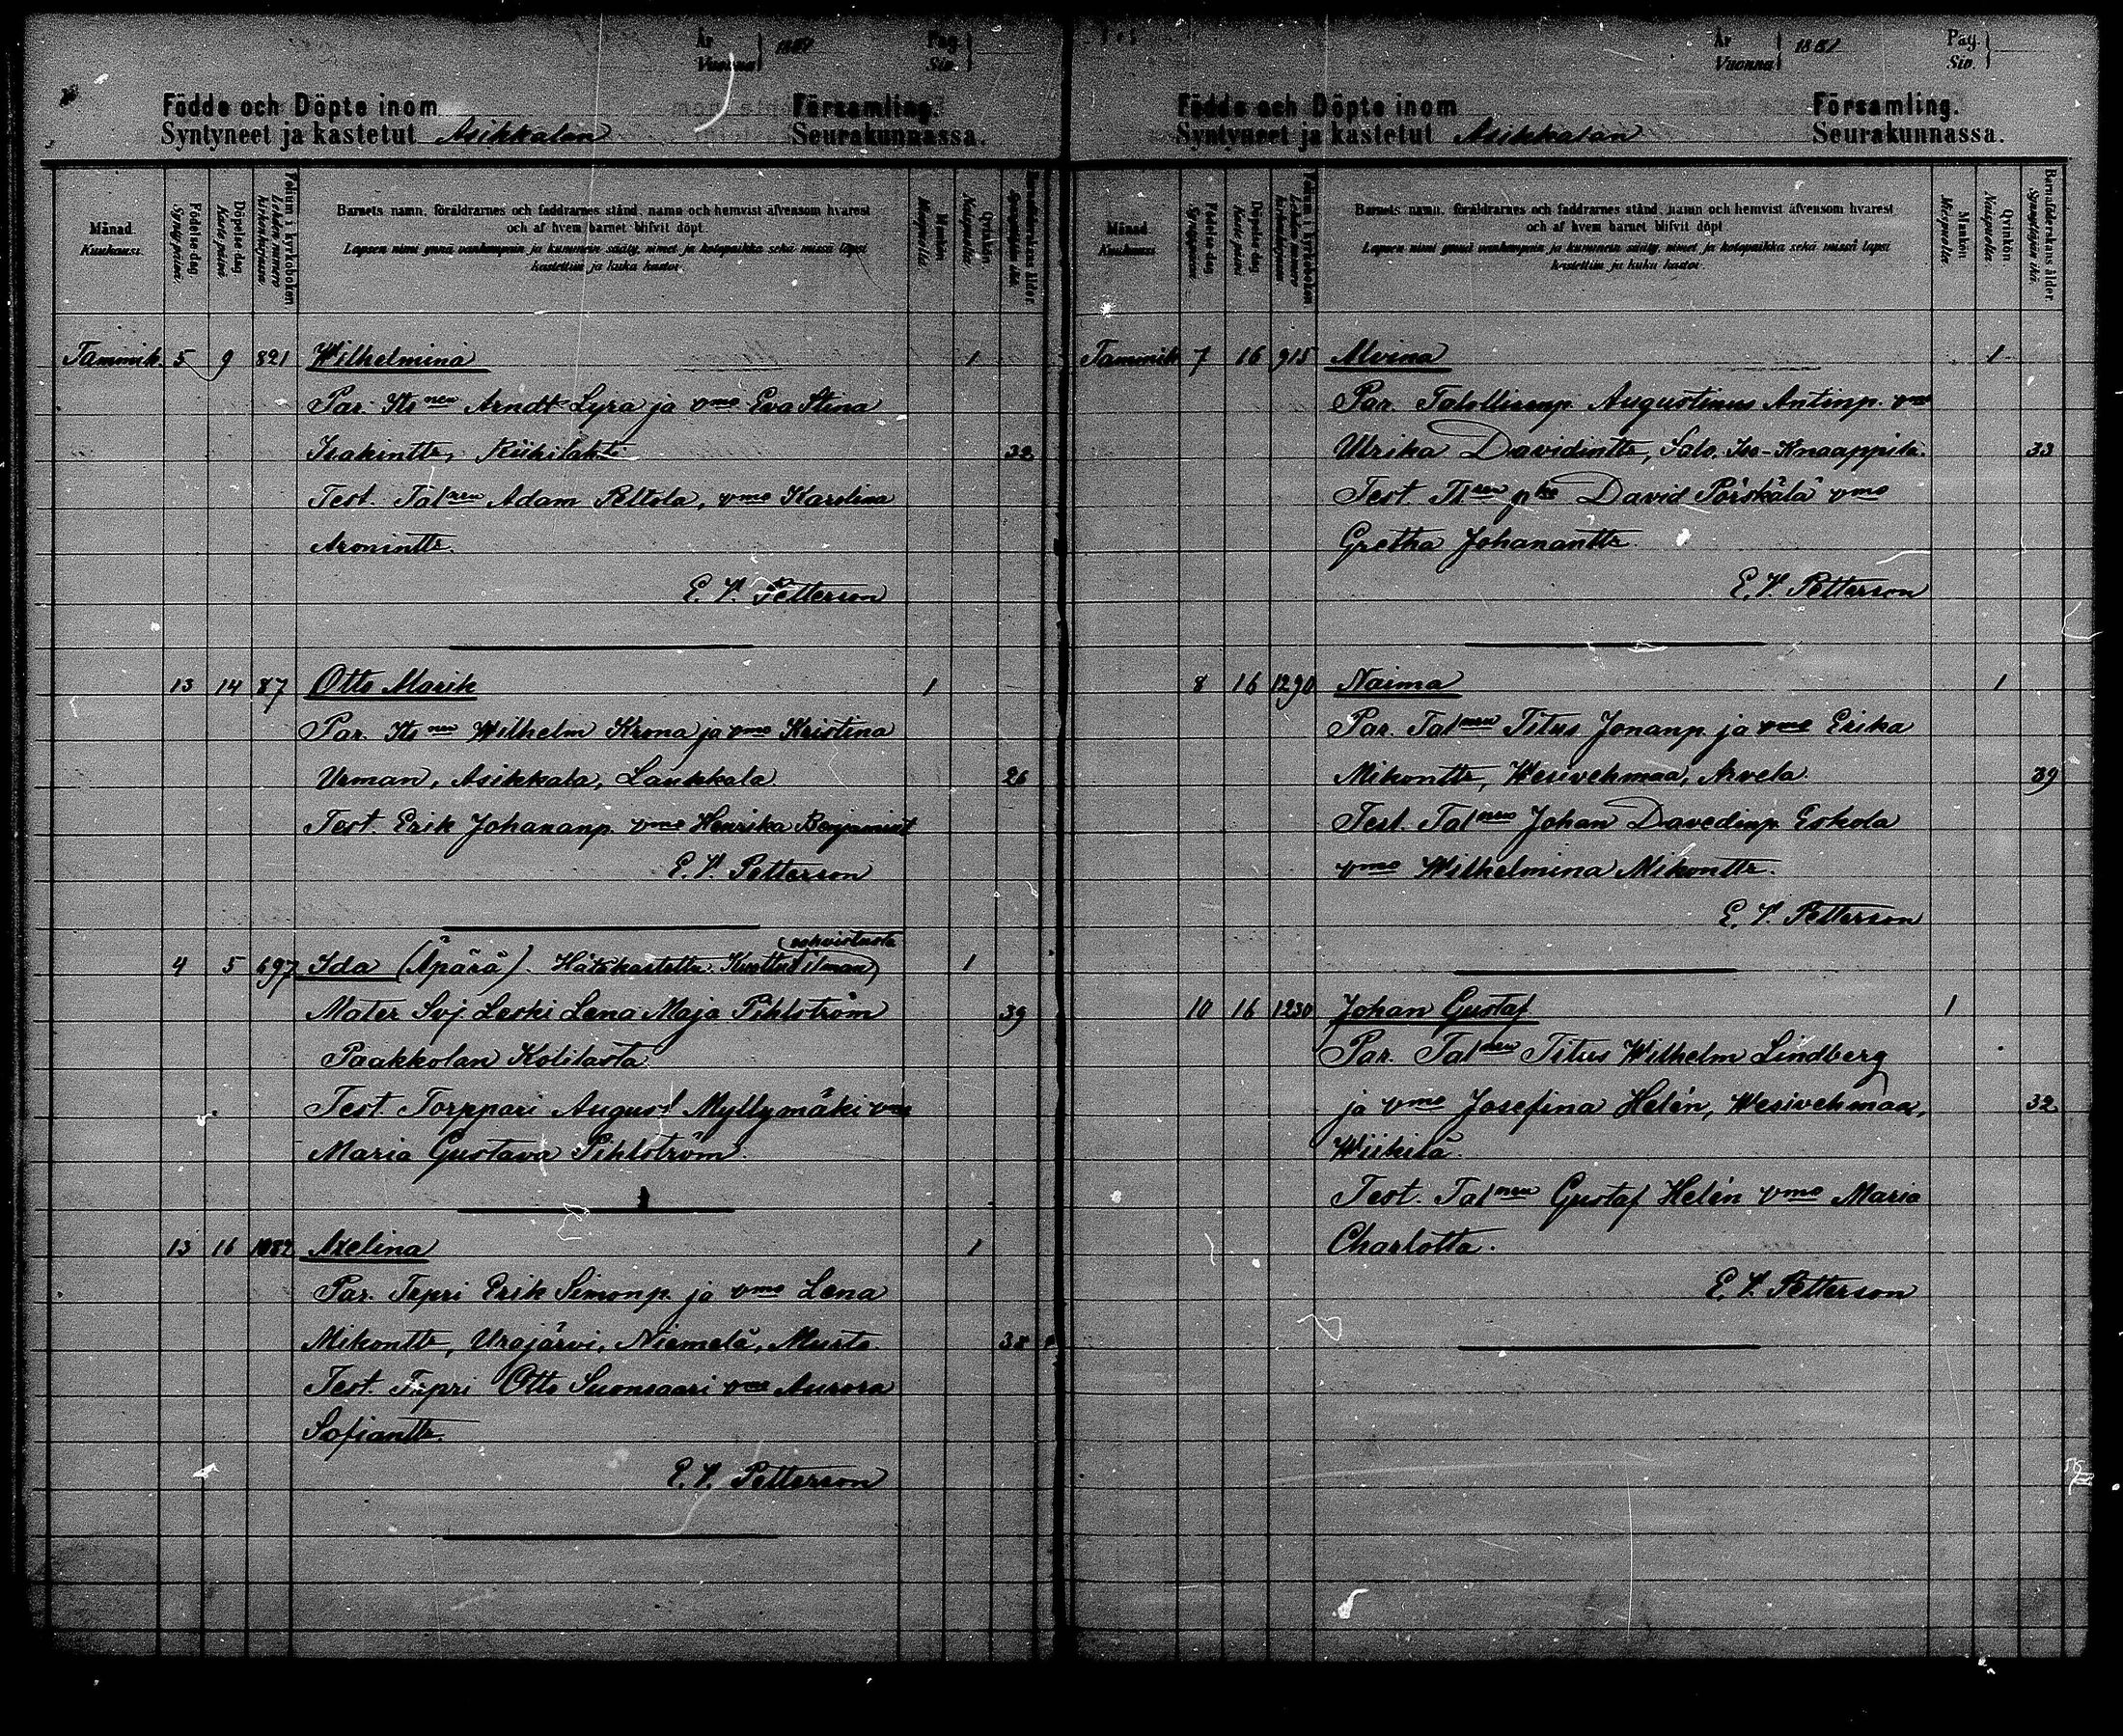 År
Vuonna
1881
Pag.
Siv.
Födde och Döpte inom
Församling.
Syntyneet ja kastetut Asikkalan Seurakunnassa.
Månad
Kuukausi.
Födelse-dag.
Syntymäpäivä.
Döpelse-dag.
Kastepäivä.
Folium i kyrkoboken.
Lehden numero kirkonkirjassa.
Barnets namn, föräldrarnes och faddrarnes stånd, namn och hemvist äfvensom hvarest
och af hvem barnet blifvit döpt.
Lapsen nimi ynnä vanhempain ja kummein sääty, nimet ja kotopaikka sekä missä lapsi
kastettiin ja kuka kastoi.
Mankön
Miespuolia.
Qvinkön.
Naispuolia.
Barnaföderskans ålder.
Synnyttäjän ikä.
Tammik. 5 9 821 Wilhelmina 1
Par. Its nen Arndt Lyra ja vmo Eva Stina
Isakintr, Riihilahti 32
Test. Tal nen Adam Peltola, vmo Karolina
Aronintr.
E. V. Petterson
13 14 87 Otto Marik 1
Par. Its nen Wilhelm Krona ja vmo Kristina
Urman, Asikkala, Laukkala. 26
Test. Erik Johananp. vmo Henrika Benjamint
E. V. Petterson
vahvistusta
4 5 697 Ida (Äpärä). Hätäkastettu. Kuollut ilman) 1
Mater Svj. Leski Lena Maja Pihlström 39
Paakkolan Kotilasta
Test. Torppari August Myllymäki vmo
Maria Gustava Pihlström.
13 16 1082 Axelina 1
Par. Trpri Erik Simonp. ja vmo Lena
Mikontr, Urajärvi, Niemelä, Musta. 38
Test. Trpri Otto Suonsaari vmo Aurora
Sofiantr.
E. V. Petterson
År
Vuonna
1881
Pag.
Siv.
Födde och Döpte inom
Församling.
Syntyneet ja kastetut Asikkalan Seurakunnassa.
Månad
Kuukausi
Födelse-dag
Syntymäpäivä.
Döpelse-dag
Kastepäivä
Folium i kyrkoboken
Lehden numero kirkonkirjassa
Barnets namn, föräldrarnes och faddrarnes stånd, namn och hemvist äfvensom hvarest
och af hvem barnet blifvit döpt
Lapsen nimi ynnä vanhempain ja kummein sääty, nimet ja kotopaikka sekä missä lapsi
kastettiin ja kuka kastoi.
Mankön
Miespuolia.
Qvinkön
Naispuolia.
Barnaföderskans ålder.
Synnyttäjän ikä.
Tammik 7 16 915 Alvina 1
Par. Talollisenp. Augustinus Antinp. vmo
Ulrika Davidintr, Salo, Iso-Knaappila. 33
Test. Tl nen pka David Pörskälä vmo
Gretha Johanantr
E. V. Petterson
8 16 1290 Naima 1
Par. Tal nen Titus Jonanp. ja vmo Erika
Mikontr, Wesivehmaa, Arvela. 39
Test. Tal nen Johan Davedinp. Eskola
vmo Wilhelmina Mikontr.
E. V. Petterson
10 16 1230 Johan Gustaf 1
Par. Tal nen Titus Wilhelm Lindberg
ja vmo Josefina Helén, Wesivehmaa, 32
Wiikilä.
Test. Tal nen Gustaf Helén vmo Maria
Charlotta.
E. V. Petterson